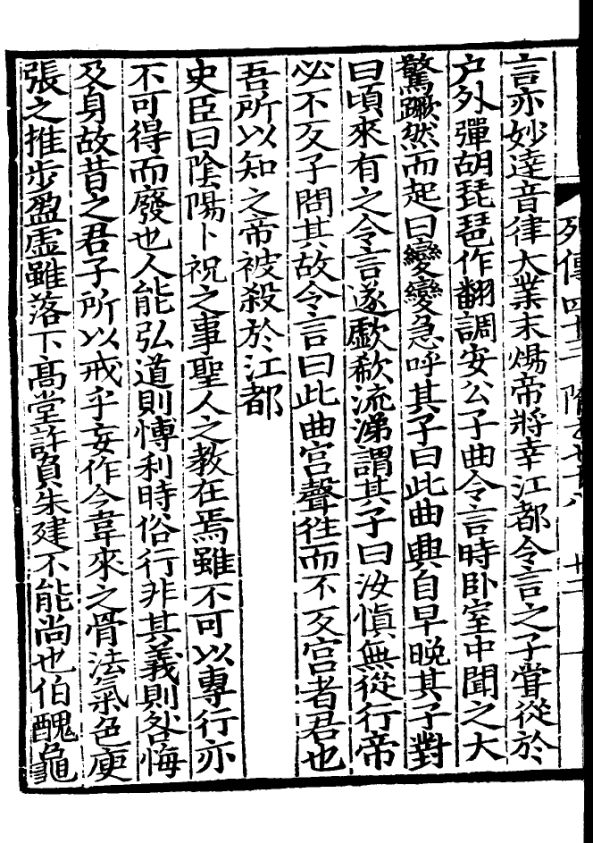 列傳四十三　隋書七十八　廿二
言亦妙達音律大業末煬帝將幸江都令言之子甞從於
户外彈胡琵琶作翻調安公子曲令言時卧室中聞之大
驚蹶然而起曰變變急呼其子曰此曲興自早晚其子對
曰頃來有之令言遂歔欷流涕謂其子曰汝慎無從行帝
必不反子問其故令言曰此曲宫聲徃而不反宫者君也
吾所以知之帝被殺於江都
史臣曰陰陽卜祝之事聖人之教在焉雖不可以專行亦
不可得而廢也人能弘道則愽利時俗行非其義則咎悔
及身故昔之君子所以戒乎妄作今韋來之骨法氣色庾
張之推步盈虚雖落下高堂許負朱建不能尚也伯醜龜